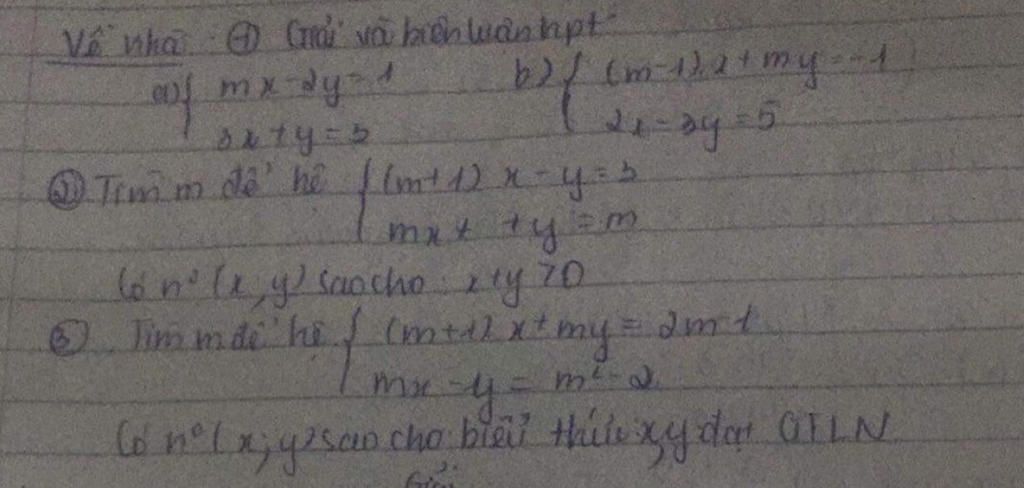 Về nhà ① Giải và biện luận hpt
a) { mx - 2y = 1 b) { (m-1)x + my = -1
3x + y = 3 2x - 3y = 5
② Tìm m để hệ { (m+1) x - y = 3
mx + + y = m
Có nº (x, y) sao cho : x + y > 0
③ Tìm m để hệ { (m+1) x + my = 2m - 1
mx - y = m² - 2
Có nº (x; y) sao cho biểu thức x,y đạt GTLN
Giải